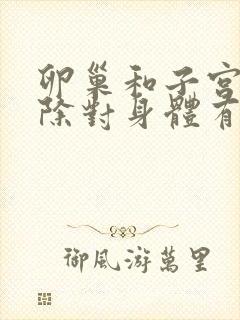 卵巢和子宮
除對身體有
御風游萬里